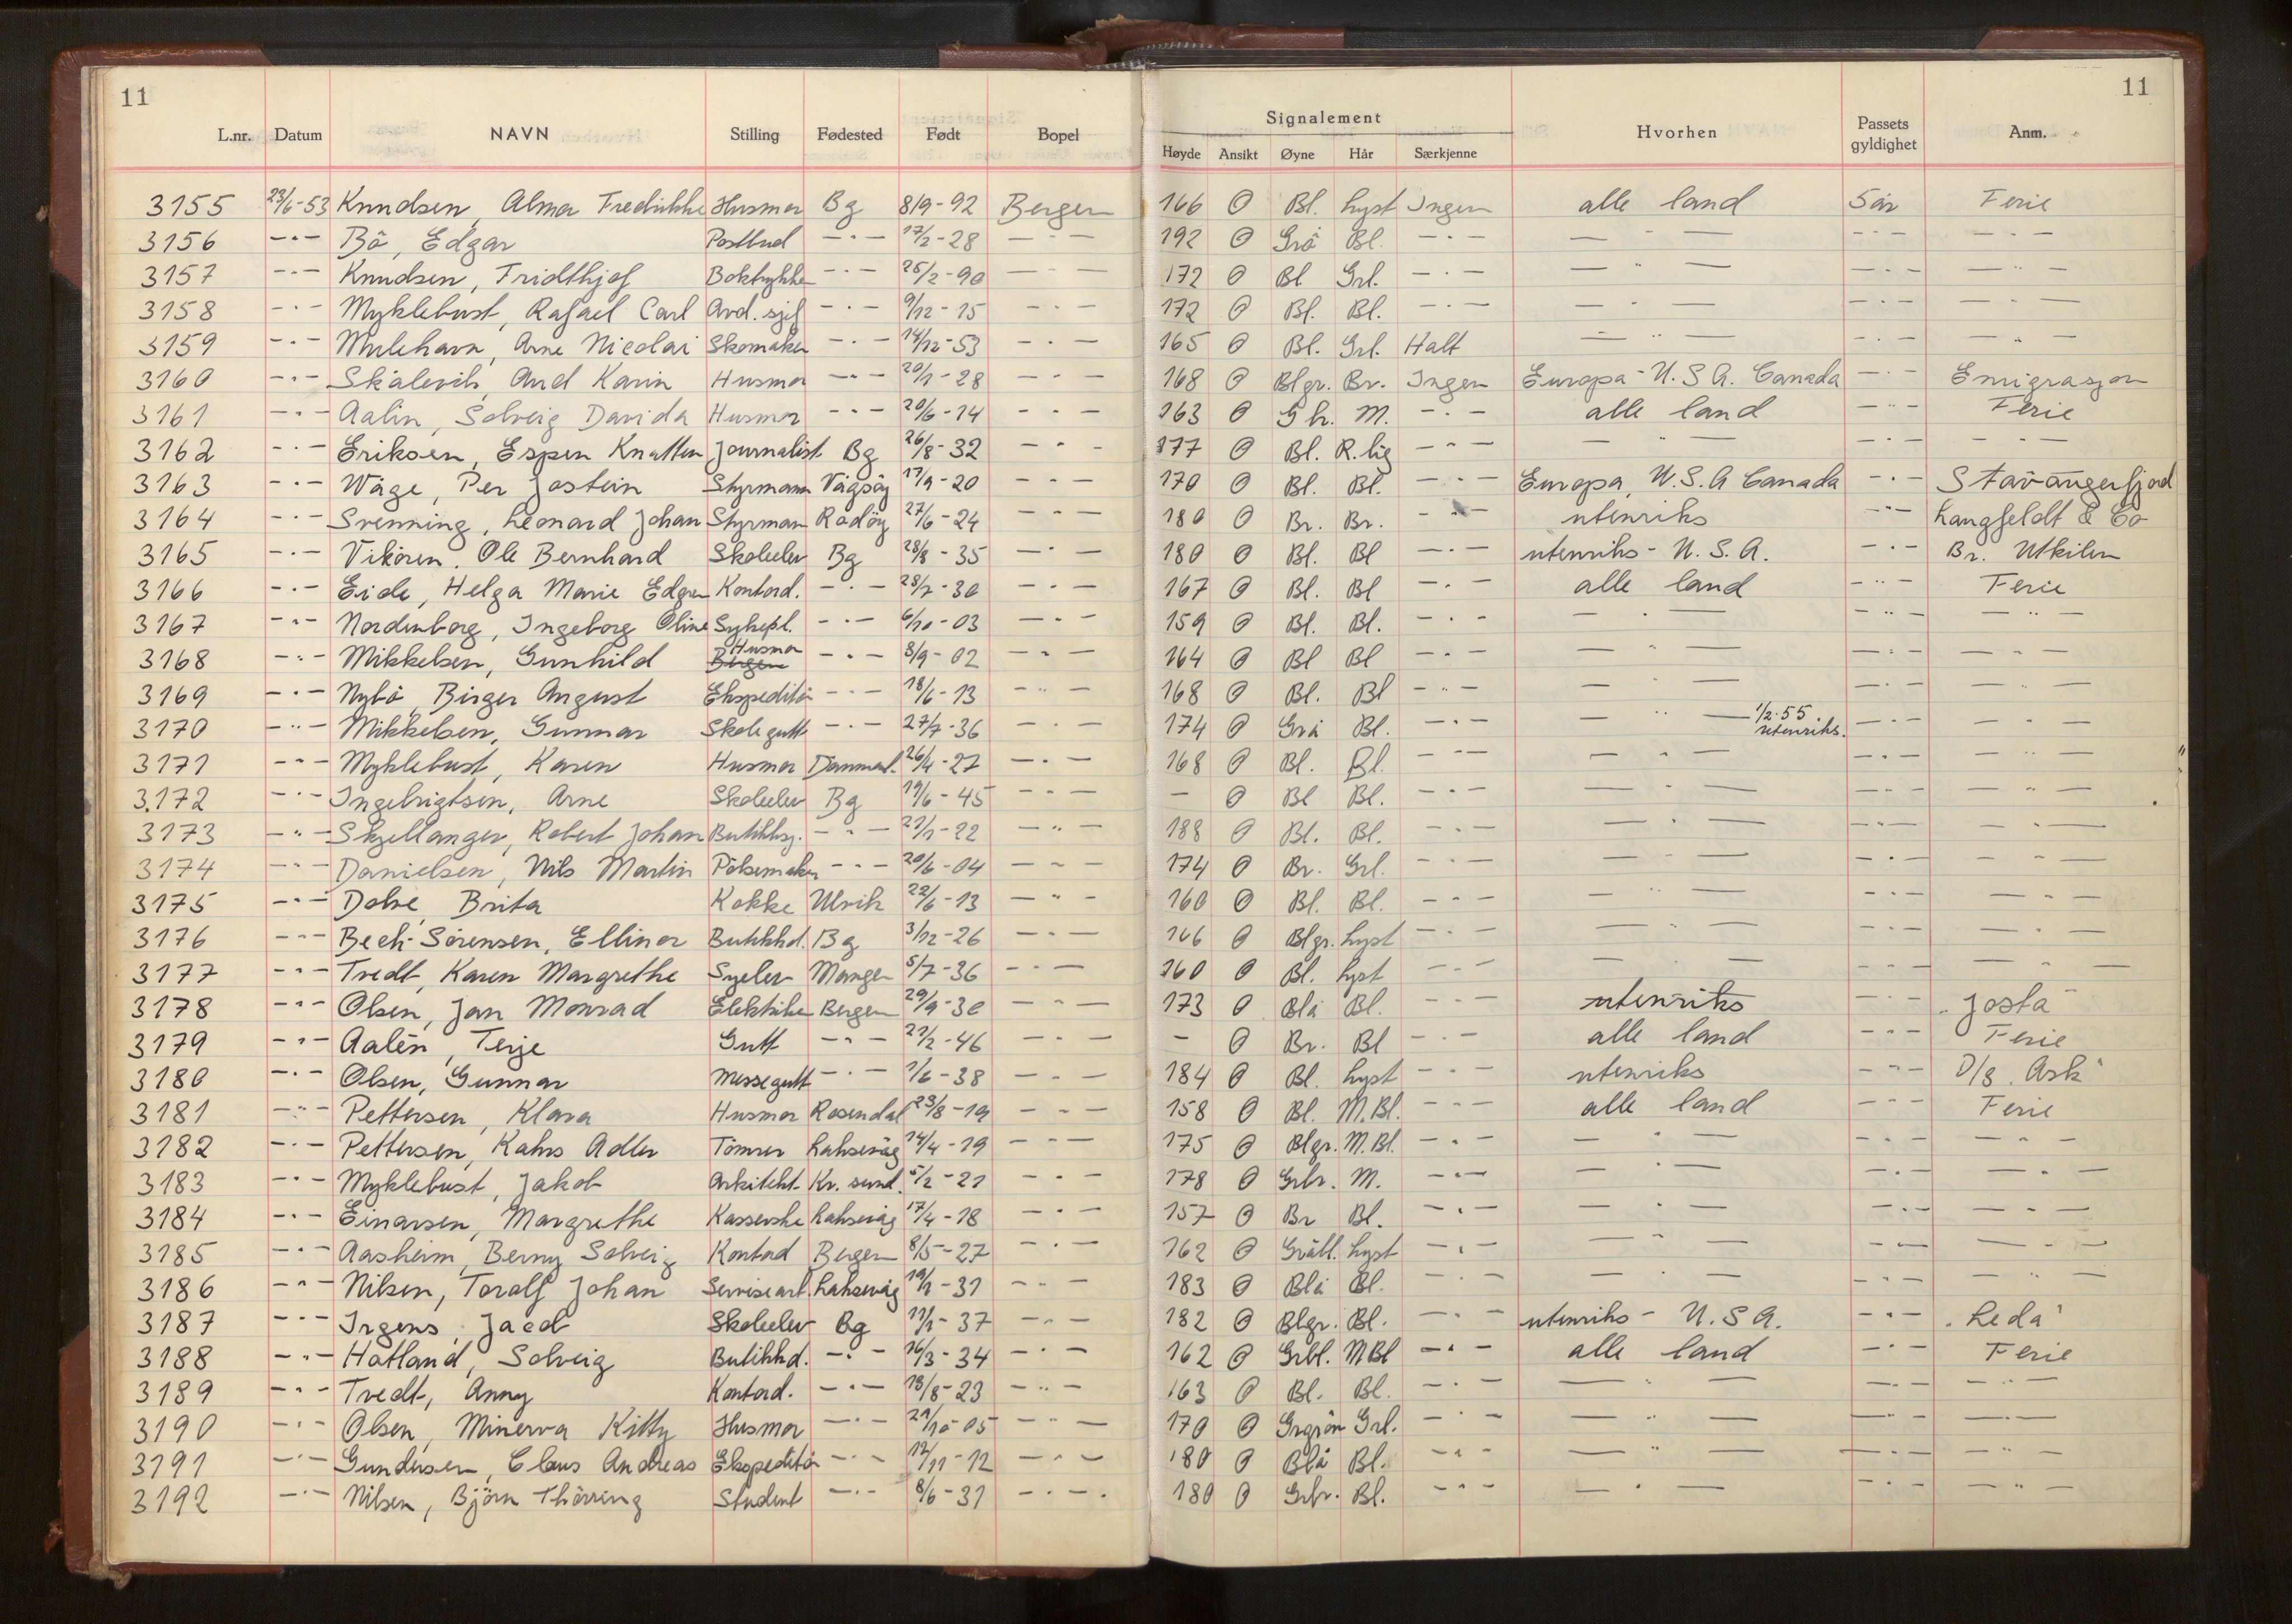 11
11
L.nr. Datum NAVN Stilling Fødested Født Bopel Signalement Hvorhen Passets gyldighet Anm.
Høyde Ansikt Øyne Hår Særkjenne
3155 23/6-53 Knudsen, Alma Fredrikke Husmor Bg 8/9-92 Bergen 166 O Bl. Lyst Ingen alle land 5 år Ferie
3156 -"- Bö, Edgar Postbud -"- 17/2-28 -"- 192 O Grå Bl. -"- -"- -"- -"-
3157 -"- Knudsen, Fridthjof Boktrykker -"- 25/2-90 -"- 172 O Bl Grl. -"- -"- -"- -"-
3158 -"- Myklebust, Rafael Carl Avd. sjef -"- 9/12-15 -"- 172 O Bl. Bl. -"- -"- -"- -"-
3159 -"- Mulehavn, Arne Nicolai Skomaker -"- 14/12-53 -"- 165 O Bl. Grl. Halt -"- -"- -"-
3160 -"- Skålevik, Aud Karin Husmor -"- 20/1-28 -"- 168 O Blgr. Br. Ingen Europa - U.S.A. Canada -"- Emigrasjon
3161 -"- Aalin, Solveig Davida Husmor -"- 20/6-14 -"- 163 O G br. M. -"- alle land -"- Ferie
3162 -"- Eriksen, Espen Knutten Journalist Bg 26/8-32 -"- 177 O Bl. R.lig -"- -"- -"- -"-
3163 -"- Wåge, Per Jostein Styrmann Vågsöy 17/9-20 -"- 170 O Bl. Bl. -"- Europa, U.S.A Canada -"- Stavangerfjord
3164 -"- Svenning, Leonard Johan Styrman Radöy 27/6-24 -"- 180 O Br. Br. -"- utenriks -"- Langfeldt & Co
3165 -"- Vikören, Ole Bernhard Skoleelev Bg 28/8-35 -"- 180 O Bl. Bl -"- utenriks - U.S.A. -"- Br. Utkilen
3166 -"- Eide, Helga Marie Edgren Kontord. -"- 28/7-30 -"- 167 O Bl. Bl -"- alle land -"- Ferie
3167 -"- Nordenborg, Ingeborg Oline Sykepl. -"- 6/10-03 -"- 159 O Bl. Bl. -"- -"- -"- -"-
3168 -"- Mikkelsen, Gunhild Husmor -"- 8/9-02 -"- 164 O Bl Bl -"- -"- -"- -"-
3169 -"- Nybö, Birger August Ekspeditör -"- 18/6-13 -"- 168 O Bl. Bl -"- -"- -"- -"-
3170 -"- Mikkelsen, Gunnar Skolegutt -"- 27/7-36 -"- 174 O Grå Bl. -"- -"- 1/2-55 utenriks. -"- -"-
3171 -"- Myklebust, Karen Husmor Danmark. 26/4-27 -"- 168 O Bl. Bl. -"- -"- -"- -"-
3172 -"- Ingebrigtsen, Arne Skoleelev Bg 19/6-45 -"- - O Bl Bl. -"- -"- -"- -"-
3173 -"- Skjellanger, Robert Johan Butikkbj. -"- 21/1-22 -"- 188 O Bl. Bl. -"- -"- -"- -"-
3174 -"- Danielsen, Nils Martin Pölsemaker -"- 20/6-04 -"- 174 O Br. Grl. -"- -"- -"- -"-
3175 -"- Dolve, Brita Kokke Ulvik 22/6-13 -"- 160 O Bl. Bl. -"- -"- -"- -"-
3176 -"- Bech-Sörensen, Ellinor Butikkd. Bg 3/12-26 -"- 166 O Blgr. Lyst -"- -"- -"- -"-
3177 -"- Tvedt, Karen Margrethe Syelev Manger 5/7-36 -"- 160 O Bl. Lyst -"- -"- -"- -"-
3178 -"- Olsen, Jan Monrad Elektriker Bergen 29/9-30 -"- 173 O Blå Bl. -"- utenriks -"- "Josta"
3179 -"- Aalén, Terje Gutt -"- 21/2-46 -"- - O Br. Bl -"- alle land -"- Ferie
3180 -"- Olsen, Gunnar Messegutt -"- 1/6-38 -"- 184 O Bl. Lyst -"- utenriks -"- D/s. Ask"
3181 -"- Pettersen, Klara Husmor Rosendal 23/8-19 -"- 158 O Bl. M.Bl. -"- alle land -"- Ferie
3182 -"- Pettersen, Kahrs Adler Tömrer Laksevåg 14/4-19 -"- 175 O Blgr. M.Bl. -"- -"- -"- -"-
3183 -"- Myklebust, Jakob Arkitekt Kr. sund. 5/2-21 -"- 178 O Grbr. M. -"- -"- -"- -"-
3184 -"- Einarsen, Margrethe Kasserske Laksevåg 17/4-18 -"- 157 O Br Bl. -"- -"- -"- -"-
3185 -"- Aasheim, Berny Solveig Kontord Bergen 8/5-27 -"- 162 O Gråbl. Lyst -"- -"- -"- -"-
3186 -"- Nilsen, Toralf Johan Servisearb. Laksevåg 19/1-31 -"- 183 O Blå Bl. -"- -"- -"- -"-
3187 -"- Irgens, Jacob Skoleelev Bg 11/1-37 -"- 182 O Blgr. Bl. -"- utenriks - U.S.A. -"- "Leda"
3188 -"- Hatland, Solveig Butikkd. -"- 16/3-34 -"- 162 O Grbl. MBl -"- alle land -"- Ferie
3189 -"- Tvedt, Anny Kontord. -"- 18/8-23 -"- 163 O Bl. Bl. -"- -"- -"- -"-
3190 -"- Olsen, Minerva Kitty Husmor -"- 21/10-05 -"- 170 O Grgrön Grl. -"- -"- -"- -"-
3191 -"- Gundersen, Claus Andreas Ekspeditör -"- 12/11-12 -"- 180 O Blå Bl. -"- -"- -"- -"-
3192 -"- Nilsen, Björn Thörring Student -"- 8/6-31 -"- 180 O Grbr. Bl. -"- -"- -"- -"-